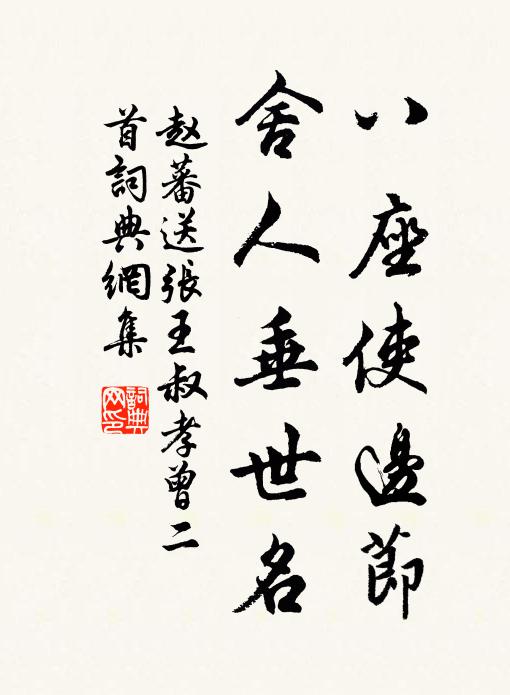 八座使邊節
舍人垂世名
赵蕃送張王叔孝曾二
首詞典網集
詞典
网印